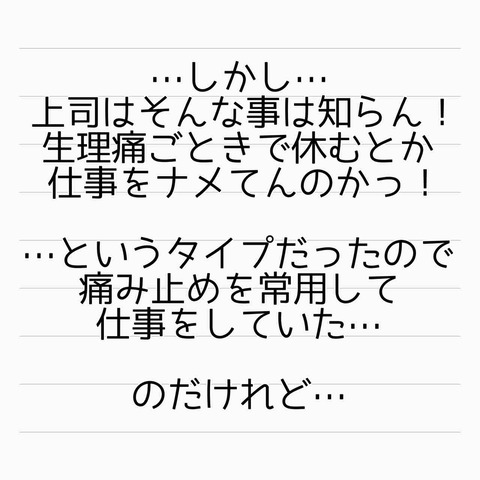 …しかし…
上司はそんな事は知らん！
生理痛ごときで休むとか
仕事をナメてんのかっ！
…というタイプだったので
痛み止めを常用して
仕事をしていた…
のだけれど…